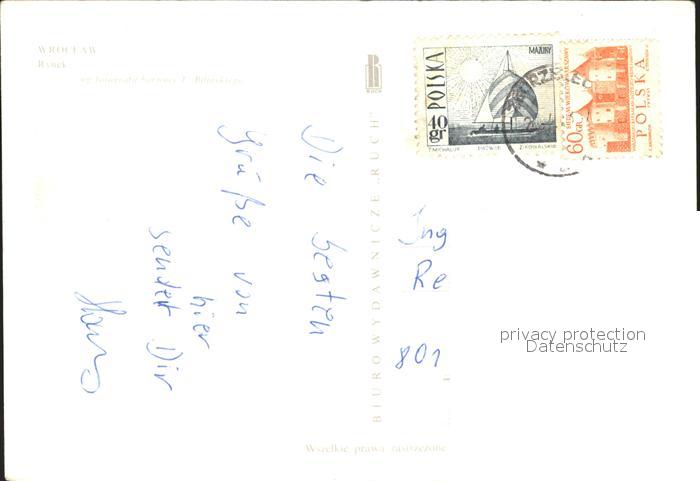 WROCŁAW
Rynek
RUCH
POLSKA
MAZURY
40 gr
T. MICHALUK
PWPW
Z. KOWALSKI
60 GR.
POLSKA
Die besten
Grüße von
hier
sendet Dir
Hans
BIURO WYDAWNICZE „RUCH"
Ing
Re
801
privacy protection
Datenschutz
Wszelkie prawa zastrzeżone